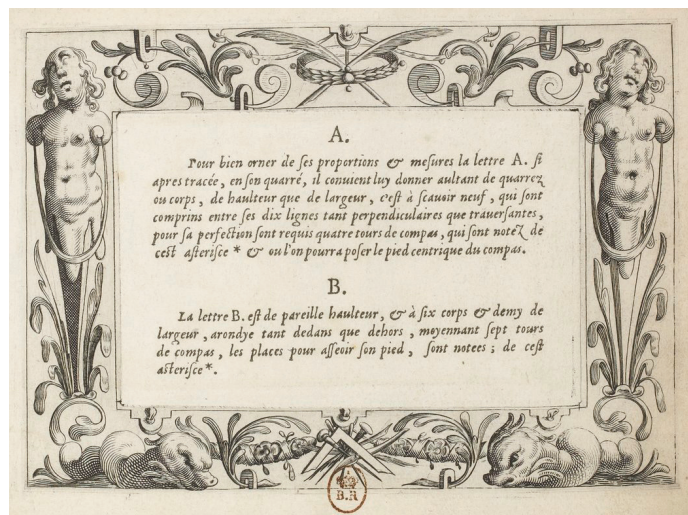 A.
Pour bien orner de ses proportions & mesures la lettre A. si
apres tracée, en son quarré, il conuient luy donner aultant de quarrez
ou corps, de haulteur que de largeur, c'est à scauoir neuf, qui sont
comprins entre ses dix lignes tant perpendiculaires que trauersantes,
pour sa perfection sont requis quatre tours de compas, qui sont notez de
cest asterisce * & ou l'on pourra poser le pied centrique du compas.
B.
La lettre B. est de pareille haulteur, & à six corps & demy de
largeur, arondye tant dedans que dehors, moyennant sept tours
de compas, les places pour asseoir son pied, sont notees; de cest
asterisce*.
B.R